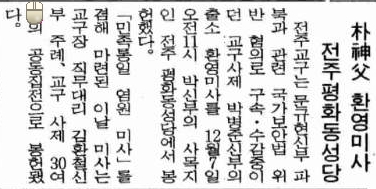 朴神父 환영미사
전주평화동성당
전주교구는 문규현신부 파
북과 관련 국가보안법 위
반 혐의로 구속·수감중이
던 교구사제 박병준신부의
출소 환영미사를 12월7일
오전11시 박신부의 사목지
인 전주 평화동성당에서 봉
헌했다.
「민족통일 염원 미사」를
겸해 마련된 이날 미사는
교구장 직무대리 김환철신
부 주례、교구 사제 30여
의 공동집전으로 봉헌됐
다.